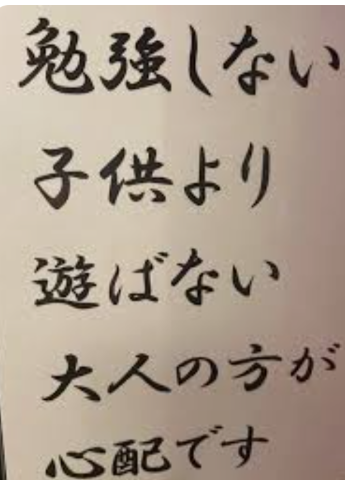 勉強しない
子供より
遊ばない
大人の方が
心配です